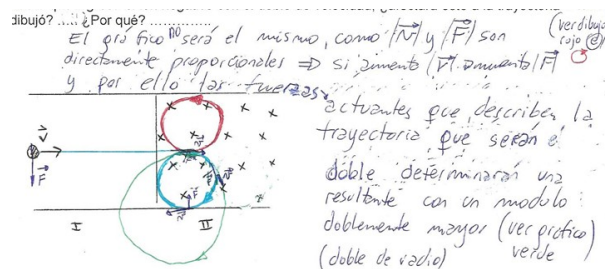 dibujó? ..... ¿Por qué? ...............
El gráfico no será el mismo, como |V| y |F| son (ver dibujo rojo e)
directamente proporcionales ⇒ si aumenta |V| aumenta |F|
y por ello las fuerzas
actuantes que describen la
trayectoria que serán el
doble determinarán una
resultante con un modulo
doblemente mayor (ver gráfico verde
(doble de radio)
V
F
I
II